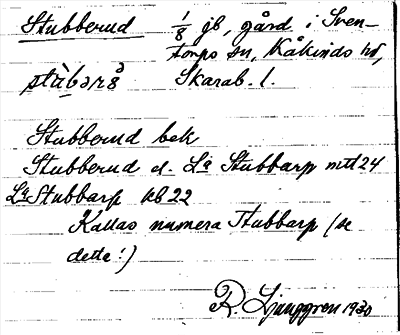 Stubberud 1/8 jb, gård i Sven-
torps sn, Kåkinds hd,
stùbәrå Skarab. l.
Stubberud bek
Stubberud el. La Stubbarp mtl 24
La Stubbarp kb 22
Kallas numera Stubbarp (se
dette!)
R. Ljunggren 1930